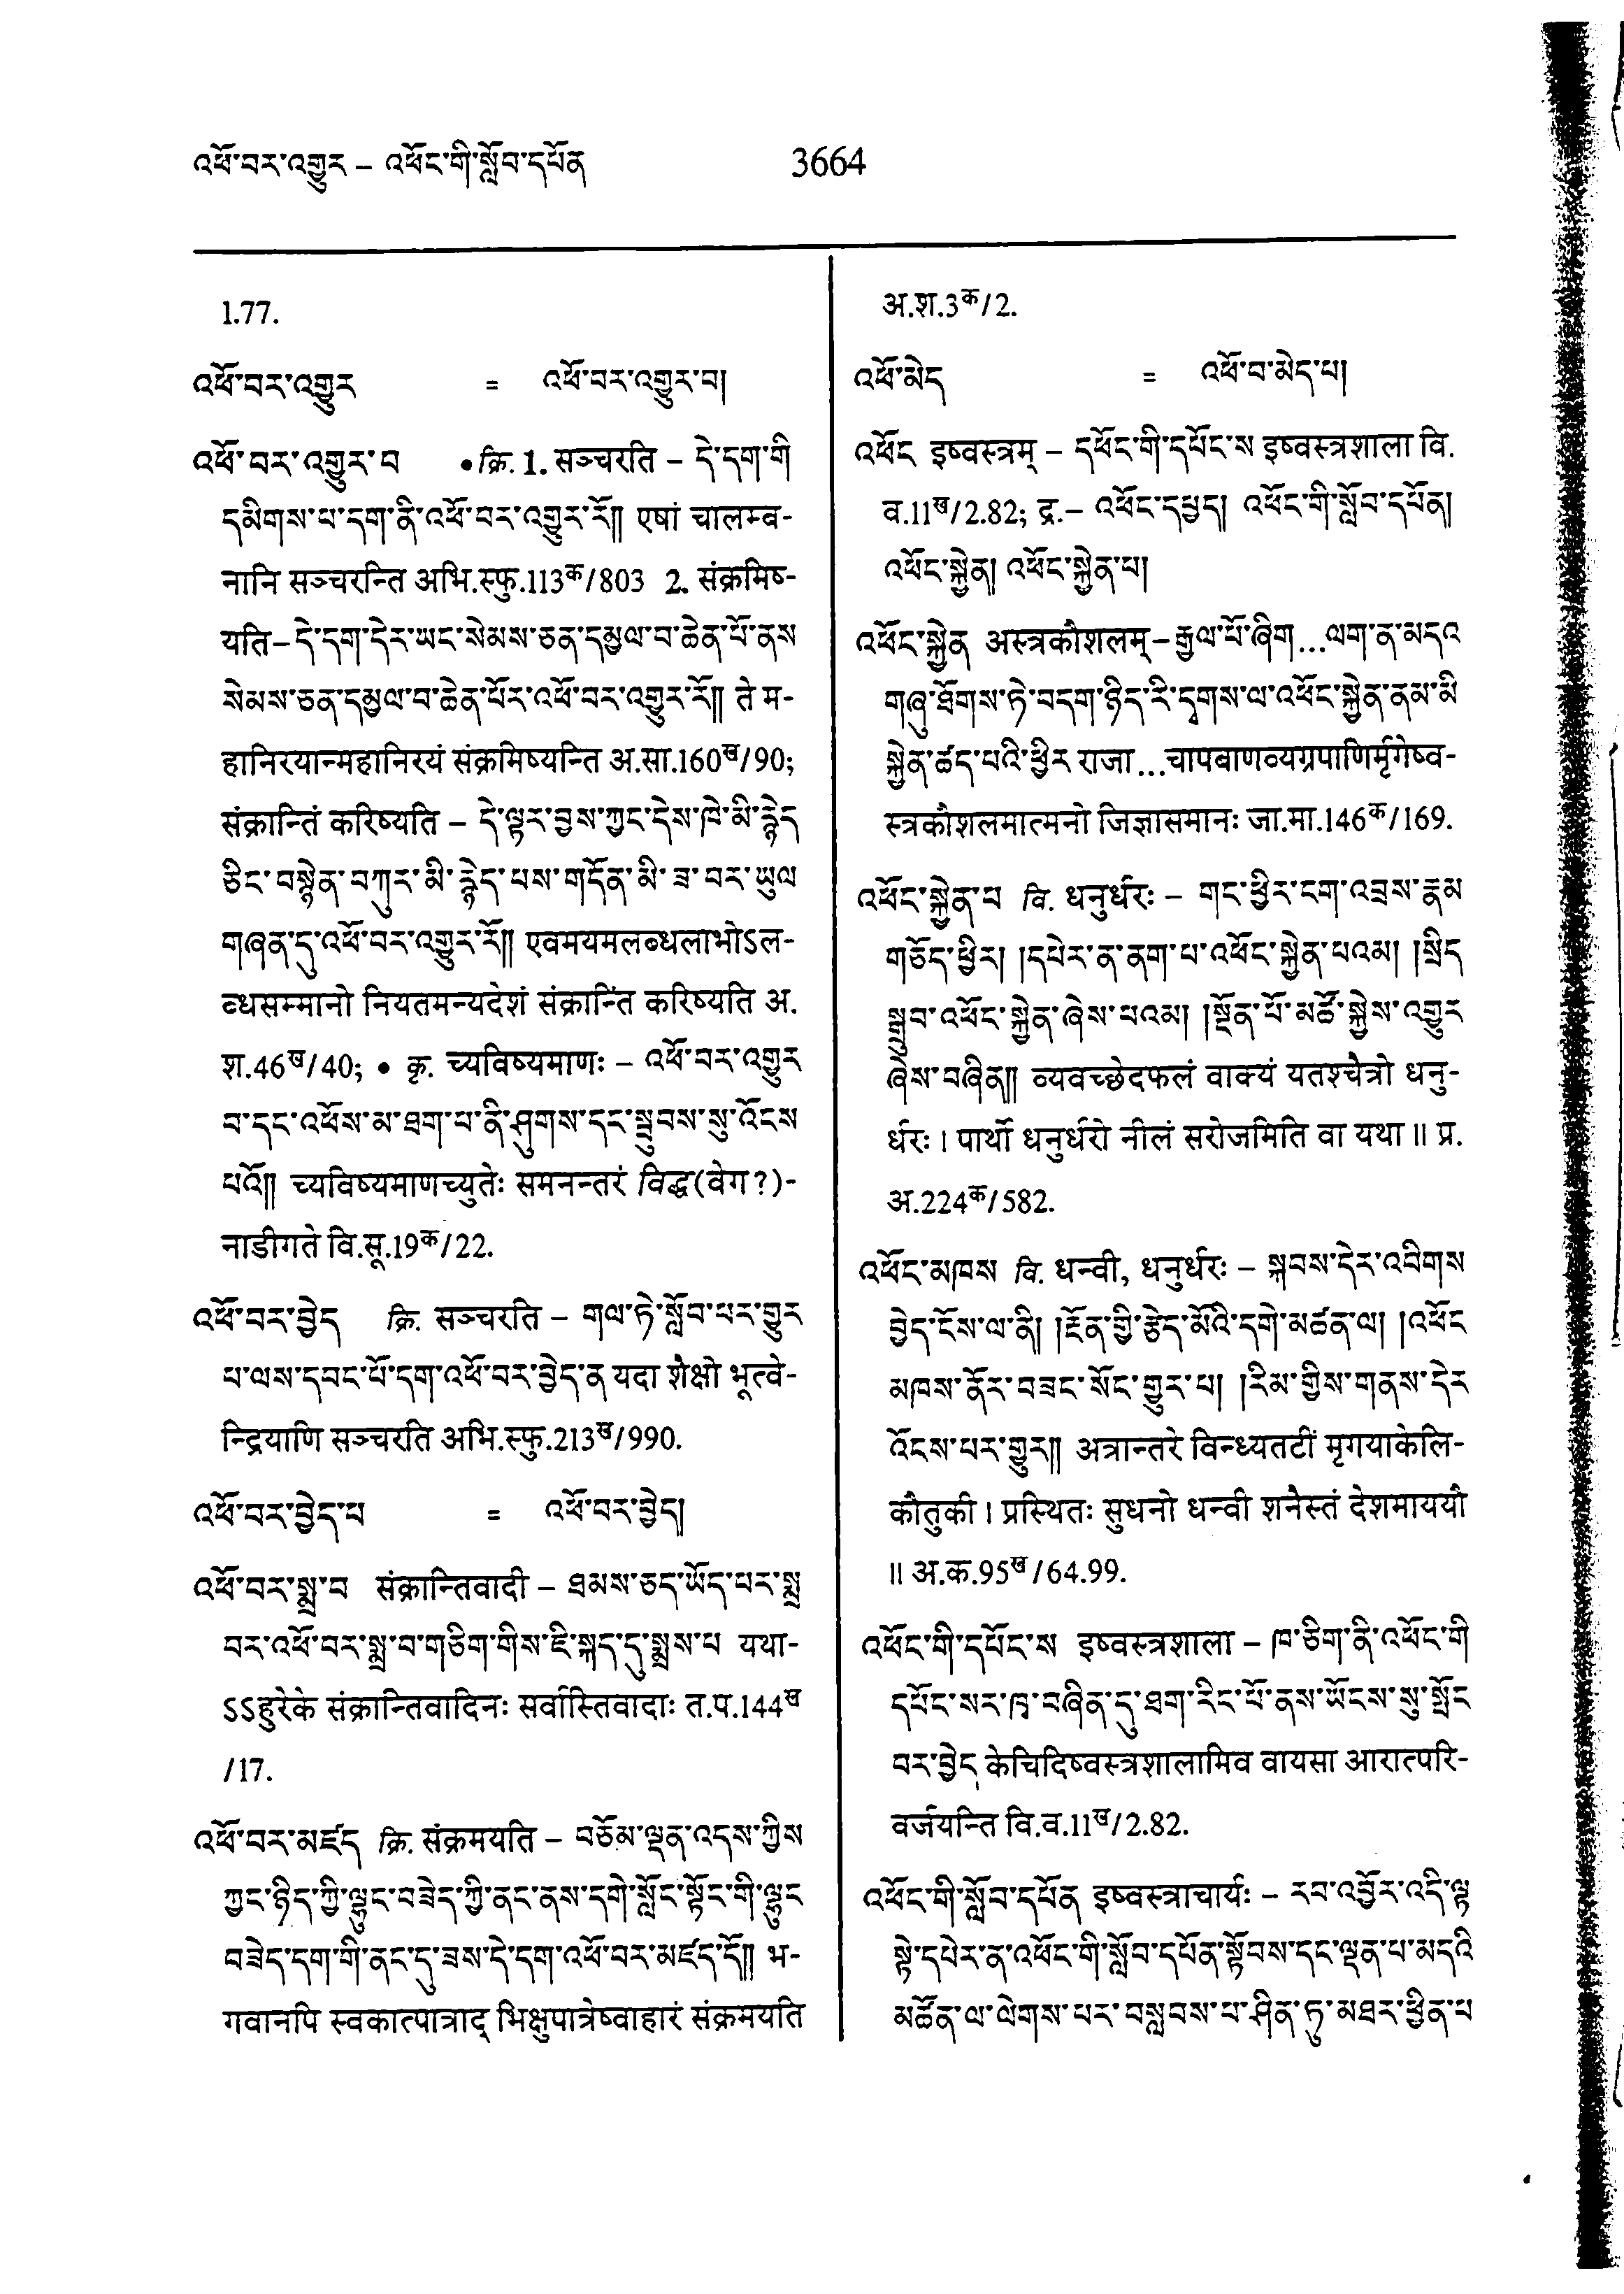 འཕོ་བར་འགྱུར – འཕོང་གི་སློབ་དཔོན
3664
1.77.
འཕོ་བར་འགྱུར = འཕོ་བར་འགྱུར་བ།
འཕོ་བར་འགྱུར་བ •क्रि. 1. सञ्चरति – དེ་དག་གི
དམིགས་པ་དག་ནི་འཕོ་བར་འགྱུར་རོ།། एषां चालम्ब-
नानि सञ्चरन्ति अभि.स्फु.113क/803 2. संक्रमिष्-
यति – དེ་དག་དེར་ཡང་སེམས་ཅན་དམྱལ་བ་ཆེན་པོ་ནས
སེམས་ཅན་དམྱལ་བ་ཆེན་པོར་འཕོ་བར་འགྱུར་རོ།། ते म-
हानिरयान्महानिरयं संक्रमिष्यन्ति अ.सा.160ख/90;
संक्रान्तिं करिष्यति – དེ་ལྟར་བྱས་ཀྱང་དེས་ཁེ་མི་རྙེད
ཅིང་བསྙེན་བཀུར་མི་རྙེད་པས་གདོན་མི་ཟ་བར་ཡུལ
གཞན་དུ་འཕོ་བར་འགྱུར་རོ།། एवमयमलब्धलाभोऽल-
ब्धसम्मानो नियतमन्यदेशं संक्रान्तिं करिष्यति अ.
श.46ख/40; • कृ. च्यविष्यमाणः – འཕོ་བར་འགྱུར
བ་དང་འཕོས་མ་ཐག་པ་ནི་ཤུགས་དང་སྦུབས་སུ་འོངས
པའོ།། च्यविष्यमाणच्युतेः समनन्तरं विद्ध(वेग?)-
नाडीगते वि.सू.19क/22.
འཕོ་བར་བྱེད क्रि. सञ्चरति – གལ་ཏེ་སློབ་པར་གྱུར
པ་ལས་དབང་པོ་དག་འཕོ་བར་བྱེད་ན यदा शैक्षो भूत्वे-
न्द्रियाणि सञ्चरति अभि.स्फु.213ख/990.
འཕོ་བར་བྱེད་པ = འཕོ་བར་བྱེད།
འཕོ་བར་སྨྲ་བ संक्रान्तिवादी – ཐམས་ཅད་ཡོད་པར་སྨྲ
བར་འཕོ་བར་སྨྲ་བ་གཅིག་གིས་ཇི་སྐད་དུ་སྨྲས་པ यथा-
ऽऽहुरेके संक्रान्तिवादिनः सर्वास्तिवादाः त.प.144ख
/17.
འཕོ་བར་མཛད क्रि. संक्रमयति – བཅོམ་ལྡན་འདས་ཀྱིས
ཀྱང་ཉིད་ཀྱི་ལྷུང་བཟེད་ཀྱི་ནང་ནས་དགེ་སློང་སྟོང་གི་ལྷུང
བཟེད་དག་གི་ནང་དུ་ཟས་དེ་དག་འཕོ་བར་མཛད་དོ།། भ-
गवानपि स्वकात्पात्राद् भिक्षुपात्रेष्वाहारं संक्रमयति
अ.श.3क/2.
འཕོ་མེད = འཕོ་བ་མེད་པ།
འཕོང इष्वस्त्रम् – དཕོང་གི་དཔོང་ས इष्वस्त्रशाला वि.
व.11ख/2.82; द्र.– འཕོང་དཔྱད། འཕོང་གི་སློབ་དཔོན།
འཕོང་སྐྱེན། འཕོང་སྐྱེན་པ།
འཕོང་སྐྱེན अस्त्रकौशलम् – རྒྱལ་པོ་ཞིག...ལག་ན་མདའ
གཞུ་ཐོགས་ཏེ་བདག་ཉིད་རི་དྭགས་ལ་འཕོང་སྐྱེན་ནམ་མི
སྐྱེན་ཚད་པའི་ཕྱིར राजा...चापबाणव्यग्रपाणिर्मृगेष्व-
स्त्रकौशलमात्मनो जिज्ञासमानः जा.मा.146क/169.
འཕོང་སྐྱེན་པ वि. धनुर्धरः – གང་ཕྱིར་ངག་འབྲས་རྣམ
གཅོད་ཕྱིར། །དཔེར་ན་ནག་པ་འཕོང་སྐྱེན་པའམ། །སྲིད
སྒྲུབ་འཕོང་སྐྱེན་ཞེས་པའམ། །སྔོན་པོ་མཚོ་སྐྱེས་འགྱུར
ཞེས་བཞིན།། व्यवच्छेदफलं वाक्यं यतश्चैत्रो धनु-
र्धरः । पार्थो धनुर्धरो नीलं सरोजमिति वा यथा ॥ प्र.
अ.224क/582.
འཕོང་མཁས वि. धन्वी, धनुर्धरः – སྐབས་དེར་འབིགས
བྱེད་ངོས་ལ་ནི། །རྔོན་གྱི་རྩེད་མོའི་དགེ་མཚན་ལ། །འཕོང
མཁས་ནོར་བཟང་སོང་གྱུར་པ། །རིམ་གྱིས་གནས་དེར
འོངས་པར་གྱུར།། अत्रान्तरे विन्ध्यतटीं मृगयाकेलि-
कौतुकी । प्रस्थितः सुधनो धन्वी शनैस्तं देशमाययौ
॥ अ.क.95ख/64.99.
འཕོང་གི་དཔོང་ས इष्वस्त्रशाला – ཁ་ཅིག་ནི་འཕོང་གི
དཔོང་སར་ཁྭ་བཞིན་དུ་ཐག་རིང་པོ་ནས་ཡོངས་སུ་སྤོང
བར་བྱེད केचिदिष्वस्त्रशालामिव वायसा आरात्परि-
वर्जयन्ति वि.व.11ख/2.82.
འཕོང་གི་སློབ་དཔོན इष्वस्त्राचार्यः – རབ་འབྱོར་འདི་ལྟ
སྟེ་དཔེར་ན་འཕོང་གི་སློབ་དཔོན་སྟོབས་དང་ལྡན་པ་མདའི
མཚོན་ལ་ལེགས་པར་བསླབས་པ་ཤིན་ཏུ་མཐར་ཕྱིན་པ